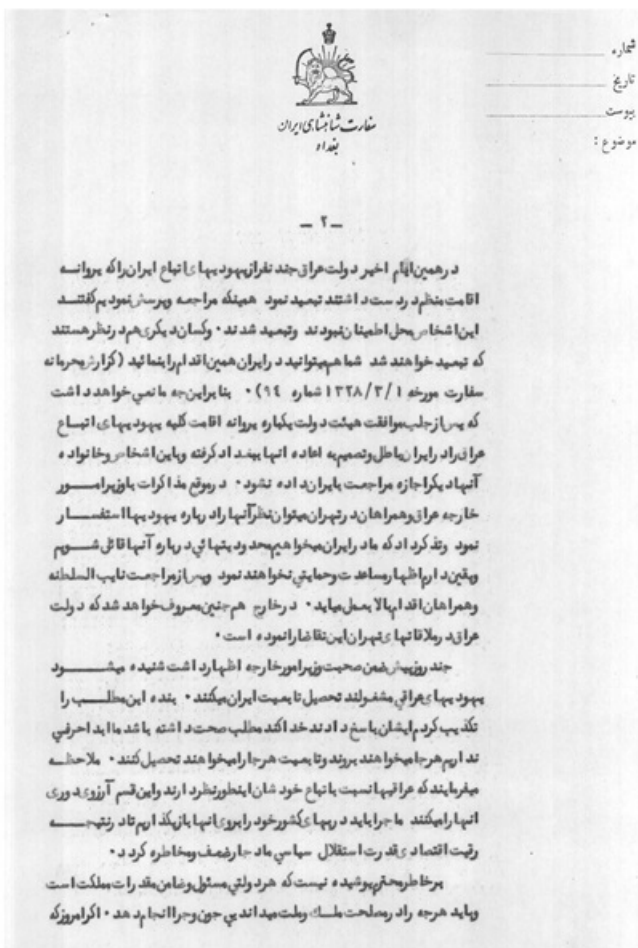 شماره
تاریخ
پیوست
موضوع :
سفارت شاهنشاهی ایران
بغداد
— ۲ —
در همین ایام اخیر دولت عراق چند نفر از یهودیهای اتباع ایران را که پروانه
اقامت منظم در دست داشتند تبعید نمود همینکه مراجعه و پرسش نمودیم گفتند
این اشخاص محل اطمینان نبودند و تبعید شدند . وکسان دیگری هم در نظر هستند
که تبعید خواهند شد شما هم میتوانید در ایران همین اقدام را بنمائید (گزارش محرمانه
سفارت مورخه ۱۳۲۸/۳/۱ شماره ۹٤) . بنابراین چه مانعی خواهد داشت
که پس از جلب موافقت هیئت دولت یکباره پروانه اقامت کلیه یهودیهای اتباع
عراق را در ایران باطل و تصمیم به اعاده آنها ببغداد گرفته و باین اشخاص و خانواده
آنها دیگر اجازه مراجعت بایران داده نشود . در موقع مذاکرات با وزیر امور
خارجه عراق و همراهان در تهران میتوان نظر آنها را درباره یهودیها استفسار
نمود وتذکر داد که ما در ایران میخواهیم محدودیتهائی درباره آنها قائل شویم
ویقین دارم اظهار مساعدت وحمایتی نخواهند نمود وپس از مراجعت نایب السلطنه
وهمراهان اقدام بالا بعمل میاید . در خارج هم چنین معروف خواهد شد که دولت
عراق در ملاقاتهای تهران این تقاضا را نموده است .
چند روز پیش ضمن صحبت وزیر امور خارجه اظهار داشت شنیده میشود
یهودیهای عراقی مشغولند تحصیل تابعیت ایران میکنند . بنده این مطلب را
تکذیب کردم ایشان پاسخ دادند خدا کند مطلب صحت داشته باشد ما ابدا حرفی
نداریم هرجا میخواهند بروند وتابعیت هرجا را میخواهند تحصیل کنند . ملاحظه
میفرمایند که عراقیها نسبت باتباع خودشان اینطور نظر دارند واین قسم آرزوی دوری
آنها را میکنند ما چرا باید دربهای کشور خود را بروی آنها باز بگذاریم تا در نتیجه
رقیت اقتصادی قدرت استقلال سیاسی ما دچار ضعف ومخاطره گردد .
بر خاطر محترم پوشیده نیست که هر دولتی مسئول وضامن مقدرات مملکت است
وباید هرچه را در مصلحت ملک وملت میداند بی چون وچرا انجام دهد . اگر امروز که